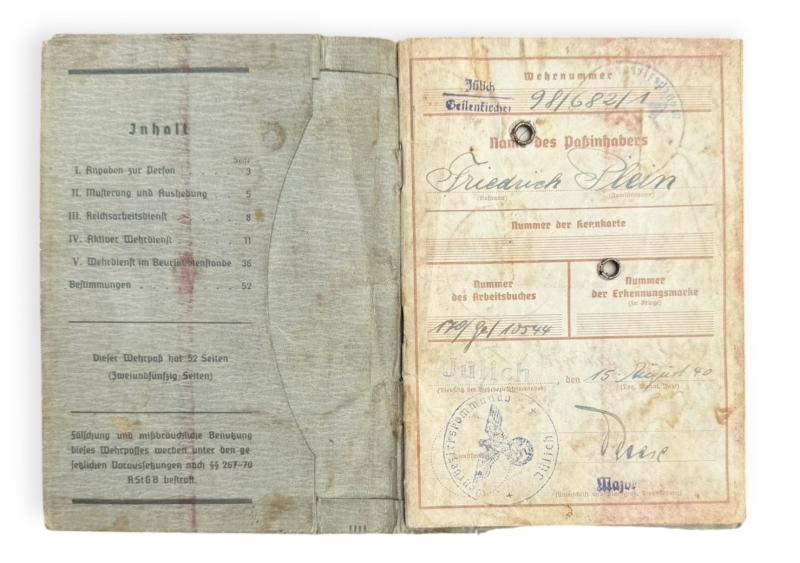 Inhalt
Seite
I. Angaben zur Person . . . 3
II. Musterung und Aushebung . 5
III. Reichsarbeitsdienst . . . 8
IV. Aktiver Wehrdienst . . . 11
V. Wehrdienst im Beurlaubtenstande 36
Bestimmungen . . . . . 52
Dieser Wehrpaß hat 52 Seiten
(Zweiundfünfzig Seiten)
Fälschung und mißbräuchliche Benutzung
dieses Wehrpasses werden unter den ge
setzlichen Voraussetzungen nach §§ 267-70
RStGB bestraft.
Wehrnummer
Jülich
Geilenkirchen 98/682/1
Name des Paßinhabers
Friedrich Plein
(Rufname) (Familienname)
Nummer der Kernkarte
Nummer
des Arbeitsbuches
Nummer
der Erkennungsmarke
(im Kriege)
179/Gel/13544
Jülich, den 15. August 40
(Tag, Monat, Jahr)
Wehrbezirkskommando Jülich
Major